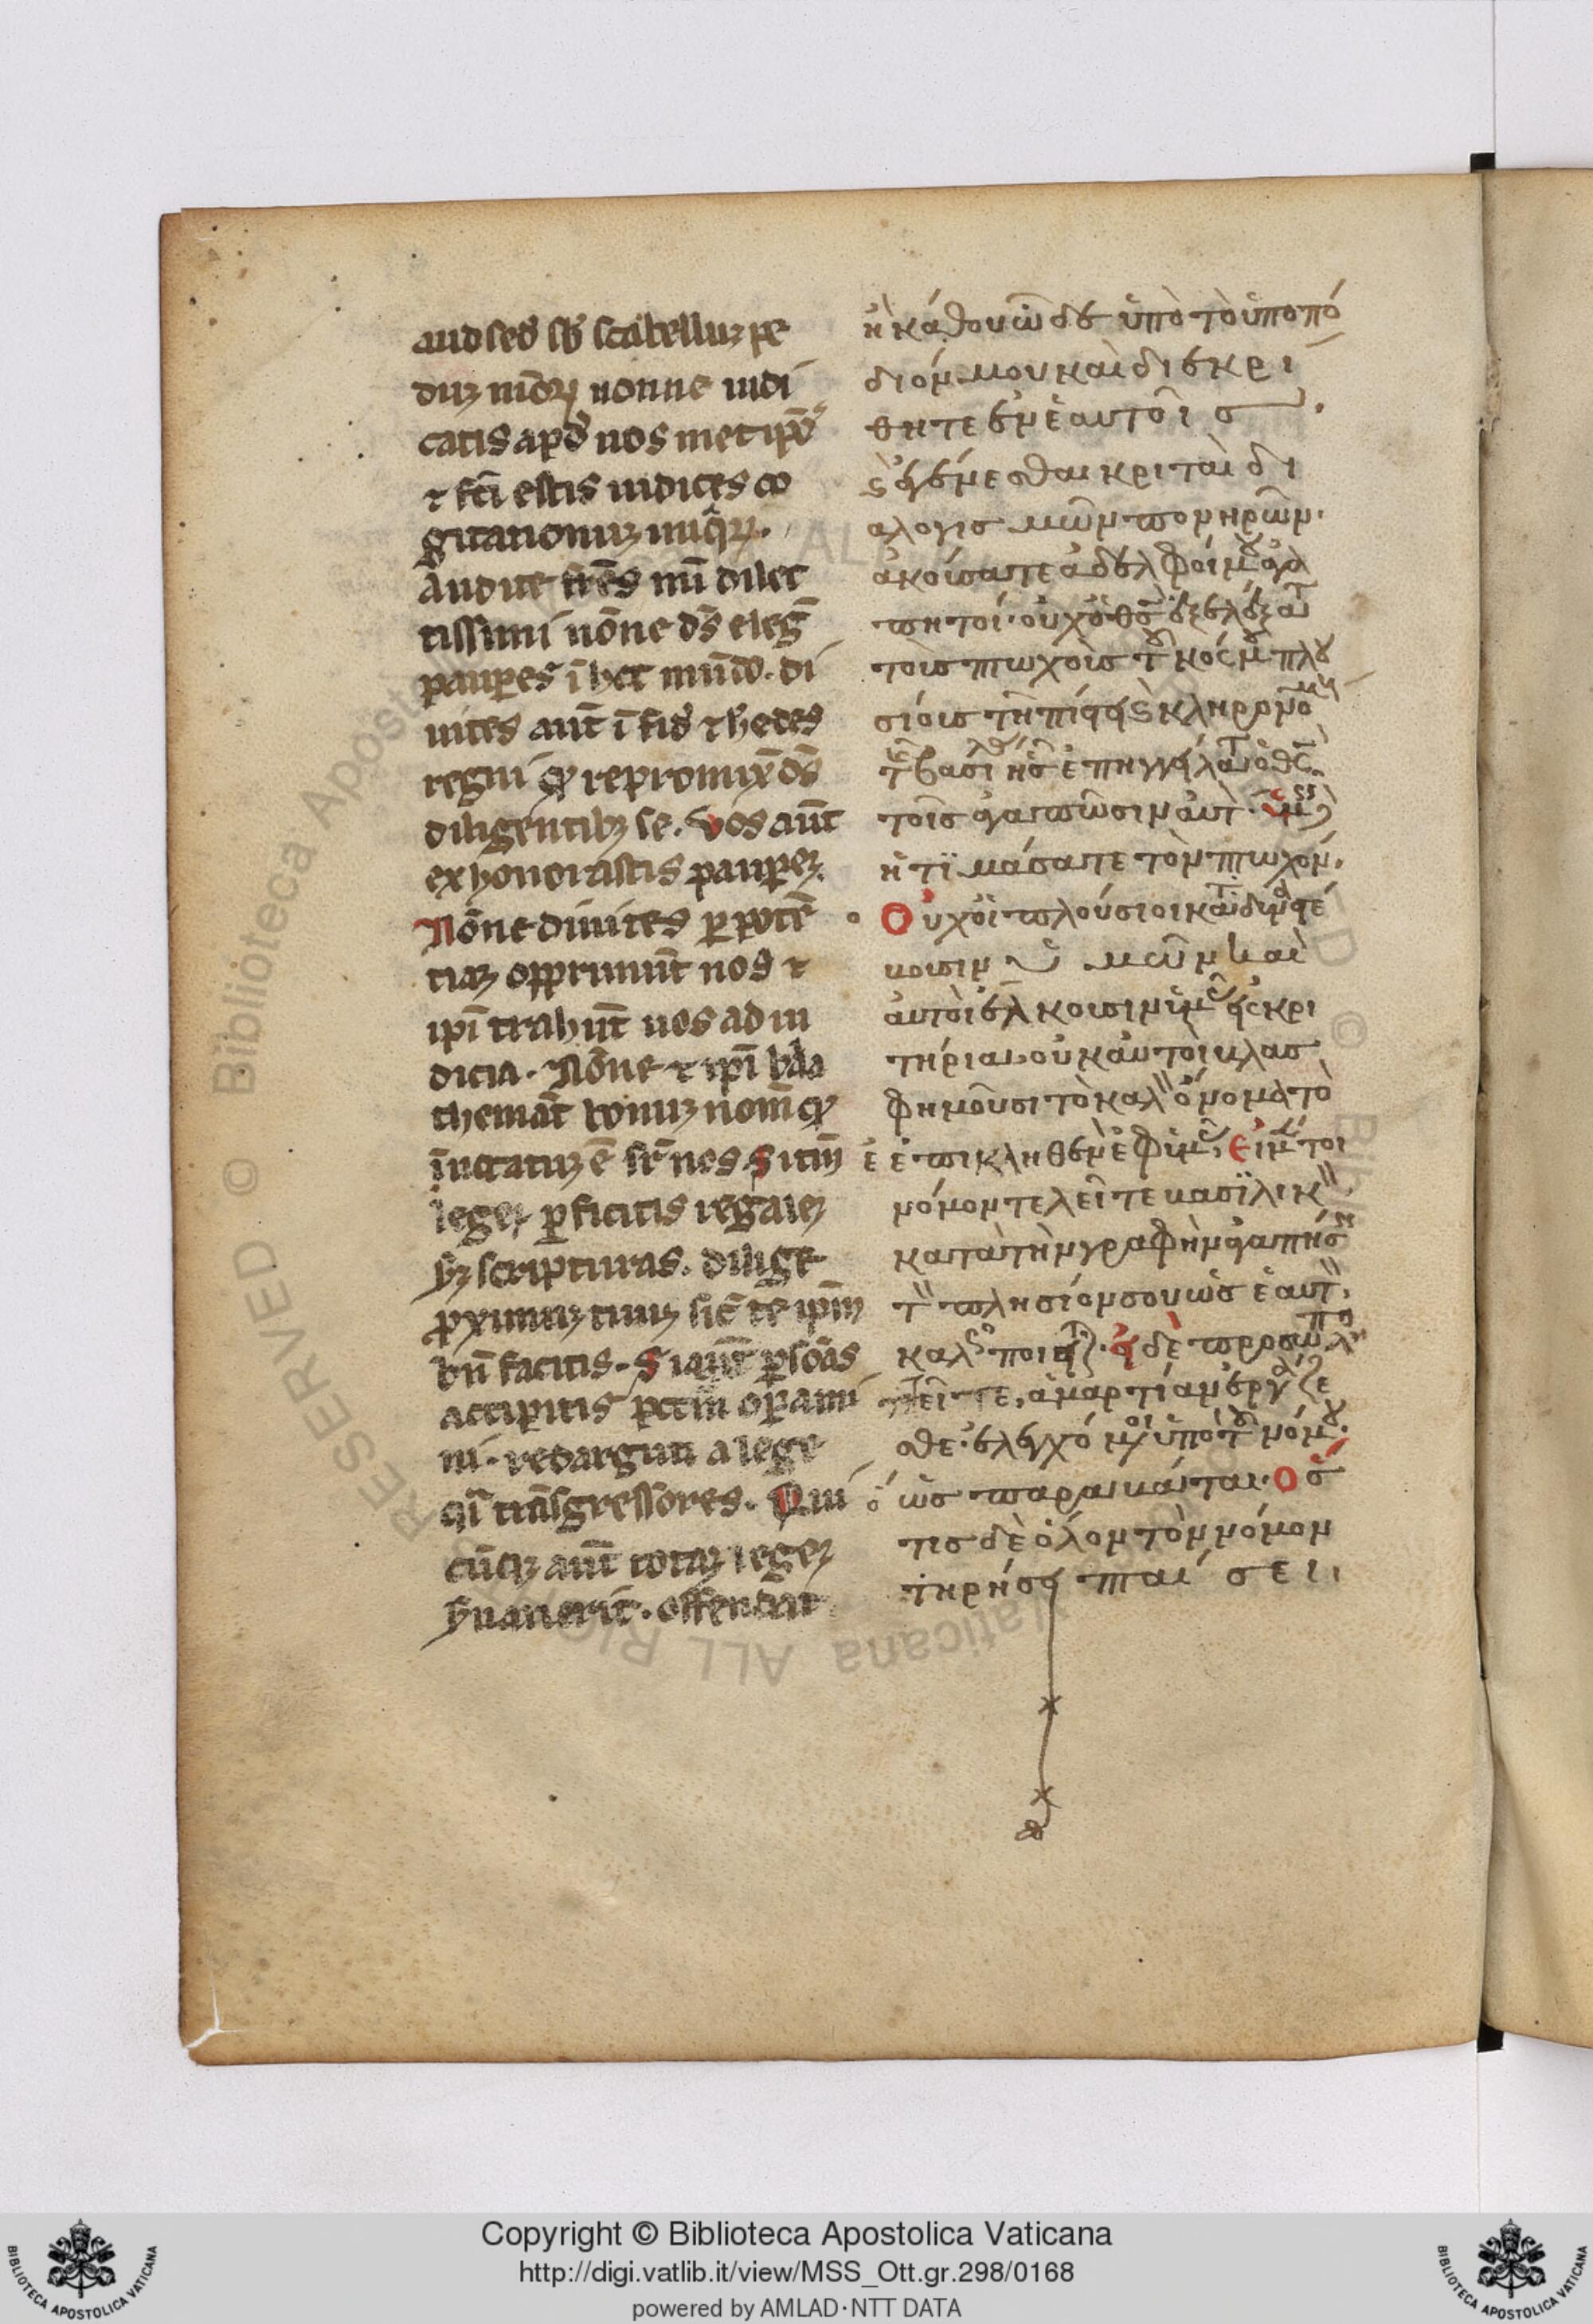 aud sed sb scabellum pe
dum meorum nonne iudi
catis apd uos metipos
et fci estis iudices co
gitationum iniqrum.
Audite fres mi dilec
tissimi none ds eleg
pauperes i hoc mudo. di
uites aut i fide et hedes
regni qd repromix ds
diligentibz se. Vos aut
exhonorastis pauperem.
None diuites per pote
tiam opprimut uos et
ipi trahut uos ad iu
dicia. None et ipi blas
themat bonum nom qd
inuocatum e sr uos. Si tm
legem perficitis regalem
scripturas. dilige
proximum tuum sic te ipm
bn facitis. Si aut persoas
accipitis pcctm operami
ni. redarguti a lege
qi trasgressores. Qui
cuqz aut totam legem
offendat
ἢ κάθου ὧδε ὑπὸ τὸ ὑποπό
διόν μου καὶ διεκρί
θητε ἐν ἑαυτοῖς.
ἐγένεσθαι κριταὶ δι
αλογισμῶν πονηρῶν.
ἀκούσατε ἀδελφοί μου ἀγα
πητοί. οὐχ ὁ θς ἐξελέξατ
τοῖς πτωχοῖς τοῦ κόσμου πλου
σίοις τῇ πίστει κληρονόμ
τῆς βασιλείας ἧς ἐπηγγείλατο ὁ θς
τοῖς ἀγαπῶσιν αὐτ. ὑμεῖς
ἠτιμάσατε τὸν πτωχόν.
Οὐχ οἱ πλούσιοι καταδυνασ
τεύουσιν ὑμῶν καὶ
αὐτοὶ ἕλκουσιν ὑμᾶς εἰς κρι
τήρια. οὐκ αὐτοὶ βλασ
φημοῦσι τὸ καλὸν ὄνομα τὸ
ἐπικληθὲν ἐφ' ὑμᾶς, εἰ μέντοι
νόμον τελεῖτε βασιλικὸν
κατὰ τὴν γραφὴν ἀγαπήσ
τὸν πλησίον σου ὡς ἑαυτόν.
καλῶς ποιεῖτε. εἰ δὲ προσωπολη
πτεῖτε, ἁμαρτίαν ἐργάζε
σθε. ἐλεγχόμενοι ὑπὸ τοῦ νόμου.
ὡς παραβάται. ὅσ
τις δὲ ὅλον τὸν νόμον
τηρήσει πταίσει.
Copyright © Biblioteca Apostolica Vaticana
http://digi.vatlib.it/view/MSS_Ott.gr.298/0168
powered by AMLAD·NTT DATA